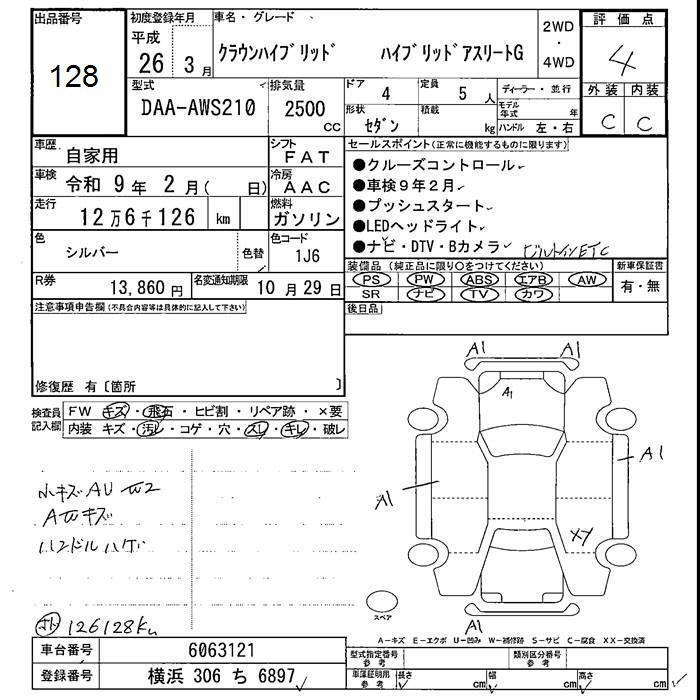 出品番号
128
初度登録年月
平成
26 3 月
車名・グレード
クラウンハイブリッド ハイブリッドアスリートG
2WD
・
4WD
評価点
4
外装 内装
C C
型式
DAA-AWS210
排気量
2500
CC
ドア 4
定員 5 人
形状 セダン
積載 kg
ディーラー・並行
モデル年式 年
ハンドル 左・右
車歴 自家用
シフト FAT
車検 令和 9 年 2 月( 日)
冷房 AAC
走行 12 万 6 千 126 km
燃料 ガソリン
色 シルバー
色替
色コード 1J6
R券 13,860 円
名変通知期限 10 月 29 日
セールスポイント(正常に機能するものに限ります)
●クルーズコントロール
●車検9年2月
●プッシュスタート
●LEDヘッドライト
●ナビ・DTV・Bカメラ ビルトインETC
装備品(純正品に限り○をつけてください)
PS PW ABS エアB AW
SR ナビ TV カワ
新車保証書
有・無
後日品
注意事項申告欄(不具合内容等は具体的に記入して下さい)
修復歴 有〔箇所 〕
検査員記入欄
FW キズ・飛石・ヒビ割・リペア跡・×要
内装 キズ・汚レ・コゲ・穴・スレ・キレ・破レ
小キズAU W2
AWキズ
ハンドルハゲ
126128km
A1 A1
A1
A1
A1
XY
A1
スペア
A－キズ E－エクボ U－凹み W－補修跡 S－サビ C－腐食 XX－交換済
車台番号 6063121
登録番号 横浜 306 ち 6897
型式指定番号 参考
類別区分番号 参考
車庫証明用 参考
長さ cm
幅 cm
高さ cm